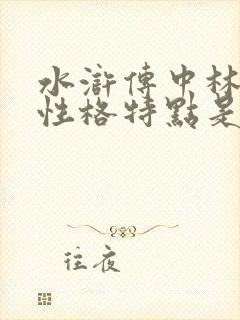 水滸傳中林
性格特點是
往夜